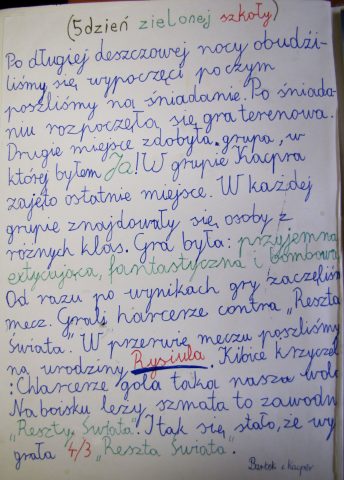 (5 dzień zielonej szkoły)
Po długiej deszczowej nocy obudzi-
liśmy się wypoczęci po czym
poszliśmy na śniadanie. Po śniada-
niu rozpoczęła się gra terenowa.
Drugie miejsce zdobyła grupa, w
której byłem Ja! W grupie Kacpra
zajęto ostatnie miejsce. W każdej
grupie znajdowały się osoby z
różnych klas. Gra była: przyjemna
extycująca, fantastyczna i bombowa
Od razu po wynikach gry zaczęliśm
mecz. Grali harcerze contra "Reszta
Świata". W przerwie meczu poszliśmy
na urodziny Rysiula. Kibice krzyczel
:Chłarcerze gola taka nasza wola
Na boisku leży szmata to zawodn
"Reszty Świata". I tak się stało, że wy
grała 4/3 "Reszta Świata".
Bartek i Kacper